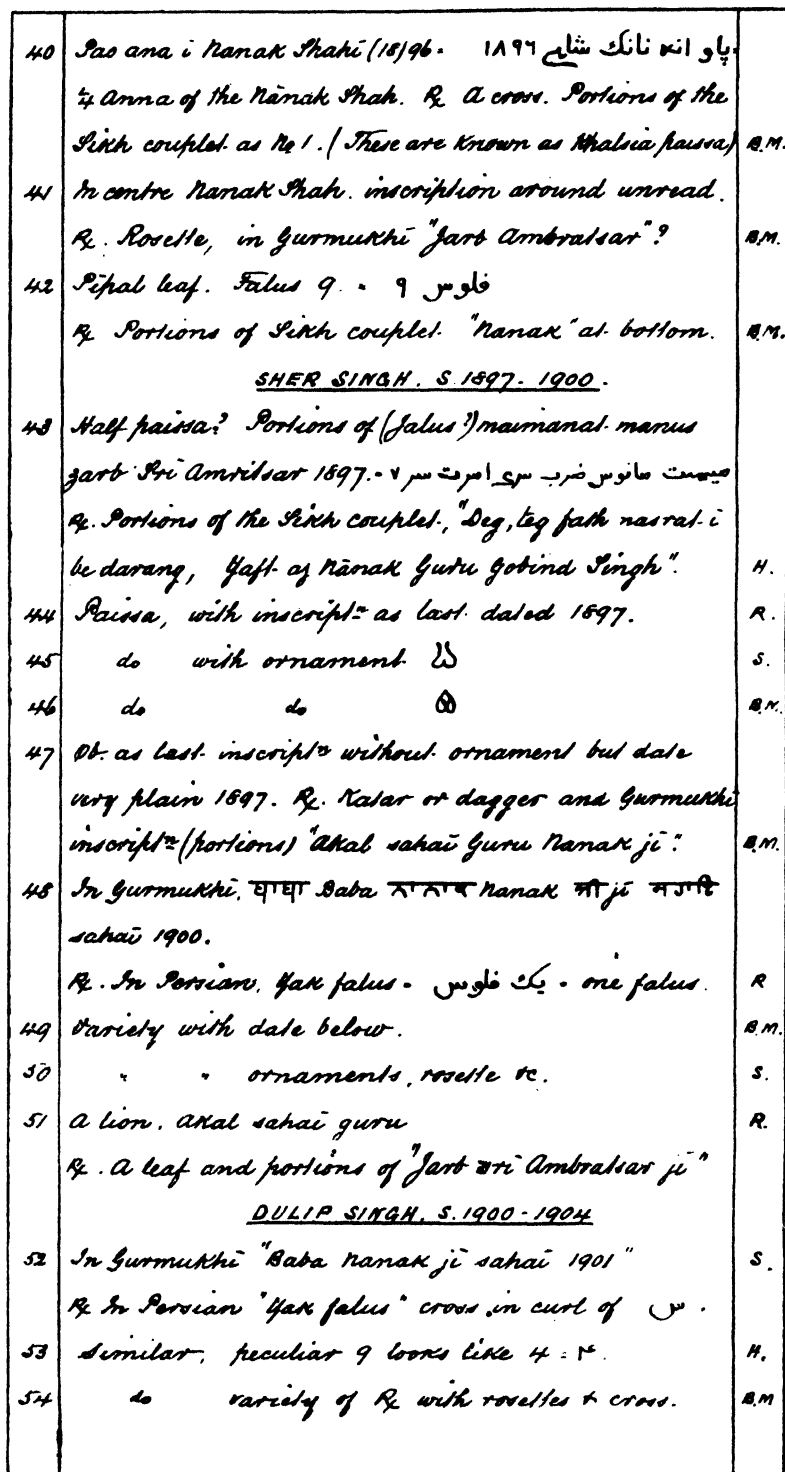 40 Pao ana i Nanak Shahi (18)96. پاو انه نانك شاهي ١٨٩٦
¼ Anna of the Nānak Shah. Rx A cross. Portions of the
Sikh couplet as No 1. (These are known as Khalsia paissa) B.M.
41 In centre Nanak Shah. inscription around unread.
Rx. Rosette, in Gurmukhi "Jarb Ambratsar"? B.M.
42 Pipal leaf. Falus 9. فلوس ٩
Rx Portions of Sikh couplet. "Nanak" at bottom. B.M.
SHER SINGH. S. 1897-1900.
43 Half paissa? Portions of (Jalus?) maimanat manus
zarb Sri Amritsar 1897. - ميمنت مانوس ضرب سرى امرت سر ٧
Rx. Portions of the Sikh couplet, "Deg, teg fath nasrat i
be darang, Yaft az Nānak Guru Gobind Singh". H.
44 Paissa, with inscriptn as last dated 1897. R.
45 do with ornament S.
46 do do B.M.
47 Ob. as last inscriptn without ornament but date
very plain 1897. Rx. Katar or dagger and Gurmukhi
inscriptn (portions) "Akal sahai Guru Nanak ji". B.M.
48 In Gurmukhi, ਬਾਬਾ Baba ਨਾਨਕ Nanak ਜੀ ji ਸਹਾਇ
sahai 1900.
Rx. In Persian, Yak falus - يك فلوس - one falus. R
49 Variety with date below. B.M.
50 " " ornaments, rosette &c. S.
51 A lion. Akal sahai guru R.
Rx. A leaf and portions of "Jarb sri Ambratsar ji"
DULIP SINGH. S. 1900-1904
52 In Gurmukhi "Baba Nanak ji sahai 1901" S.
Rx In Persian "Yak falus" cross in curl of س.
53 Similar, peculiar 9 looks like 4 = ۴. H.
54 do variety of Rx with rosettes & cross. B.M